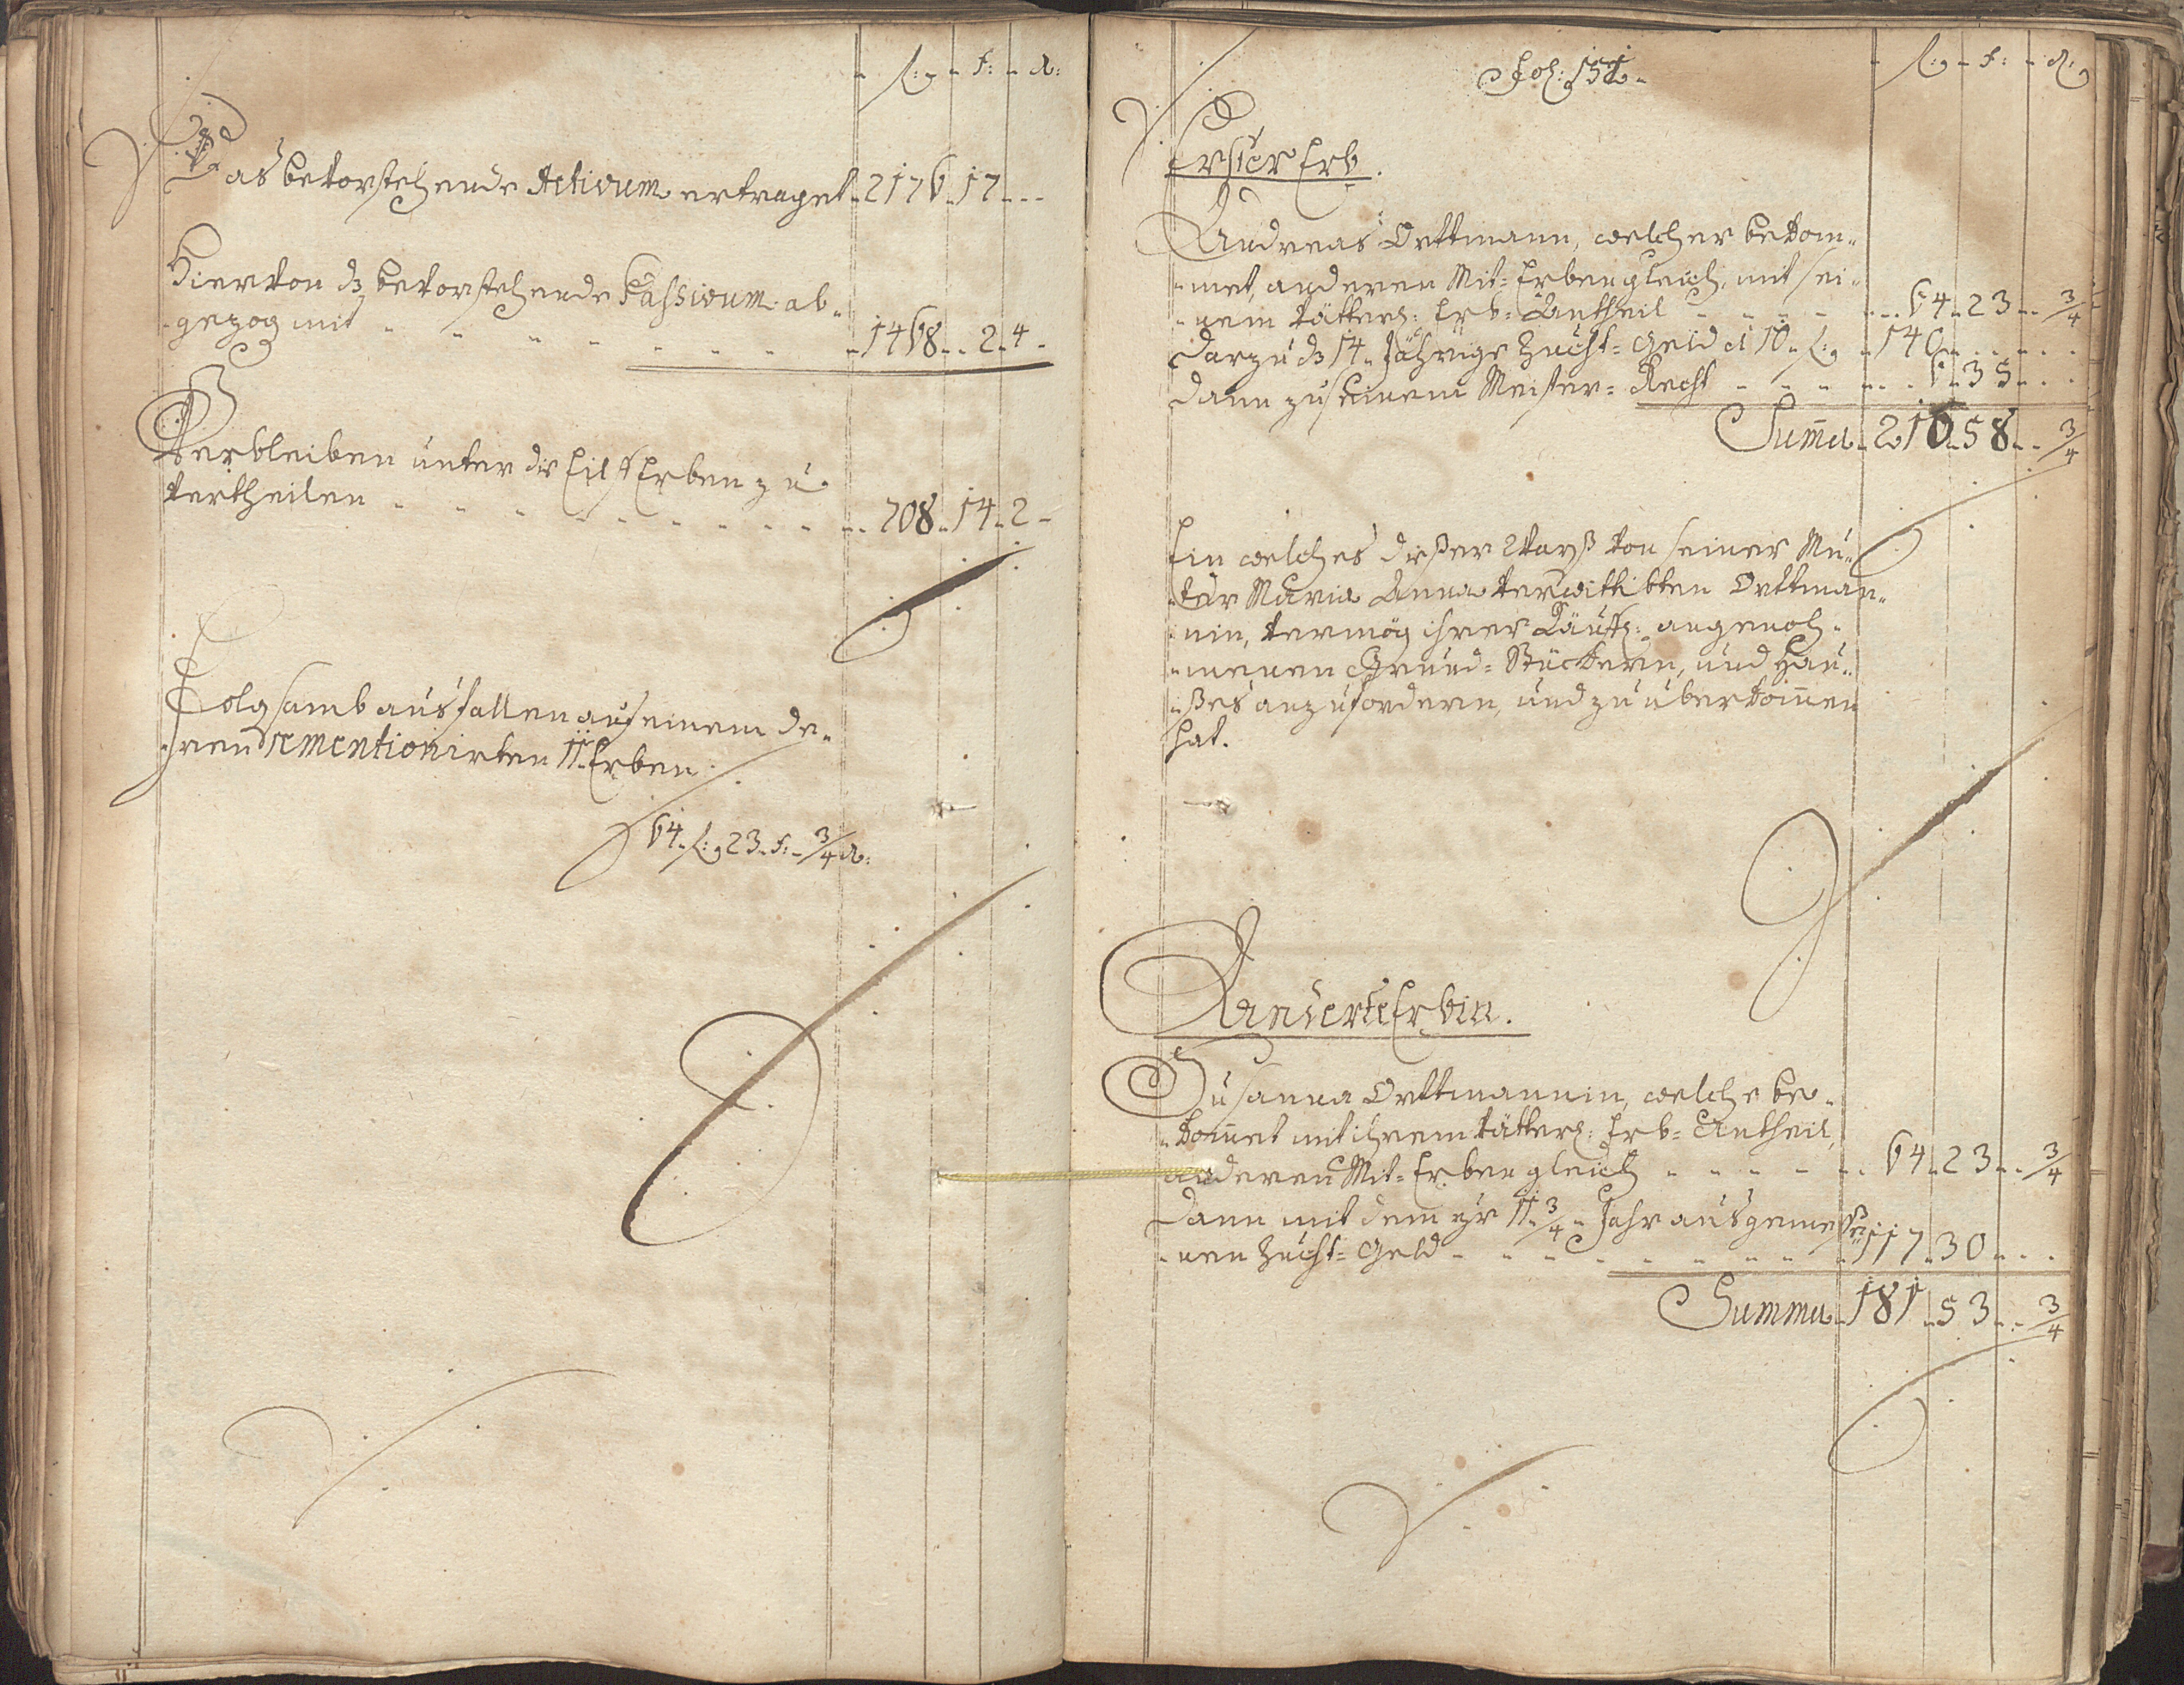 fl: ß: d:
Das bevorstehende Activum ertraget 2176 17
Hiervon dz bevorstehende Passivum ab-
gezog mit 1468 2 4
Verbleiben unter die Eilff Erben zu
vertheilen 708 14 2
Folgsamb ausfallen auf einem de-
ren remention irten 11 Erben
64 fl: 23 ß: 3/4 d:
Fol: 151
fl: ß: d:
Erster Erb.
Andreas Orttmann, welcher bekom-
met, anderen Mit-Erben gleich, mit sei-
nem vätterl: Erb-Antheil 64 23 3/4
Darzu dz 14 Jährige Zucht-Geld a 10 fl: 140
Dann zu seinem Meister-Recht 6 35
Sum̄a 210 58 3/4
Ein welches dießer von seiner Mu-
ter Maria Anna verwittibten Orttman-
nin, vermög ihrer käufl: angenoh-
menen Grund-Stückern, und Hau-
ßes anzufordern, und zu überkom̄en
hat.
Anderte Erbin.
Susanna Orttmannin, welche be-
kom̄et mit ihrem vätterl: Erb-Antheil,
anderen Mit-Erben gleich 64 23 3/4
Dann mit dem für 11 3/4 Jahr ausgemeße-
nen Zucht-Geld 117 30
Summa 181 53 3/4